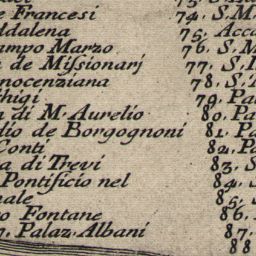 e Francesi 74. S. M.
ddalena 75. Acca
ampo Marzo 76. S. M
a de Missionarj 77. S.
nocenziana 78. S. T
higi 79. Pal
n di M. Aurelio 80. Pa
dio de Borgognoni 81. Pa
Conti 82. Pa
a di Trevi 83. S
Pontificio nel 84. S
nale 85. S
ro Fontane 86.
7. Palaz. Albani 87
88